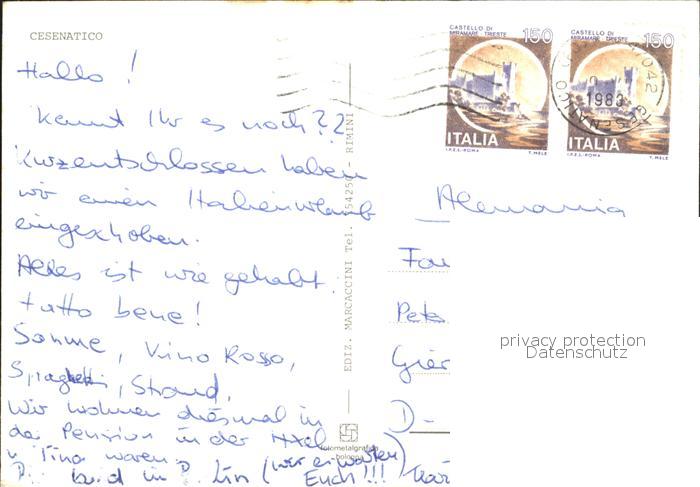 CESENATICO
Hallo !
Kennt Ihr es noch??
Kurzentschlossen haben
wir einen Italienurlaub
eingeschoben.
Alles ist wie gehabt.
tutto bene!
Sonne, Vino Rosso,
Spaghetti, Strand,
Wir wohnen diesmal in
der Pension in der Axel
u Tina waren.
bald in (wir erwarten
Euch!!!)
EDIZ. MARCACCINI Tel. 54256 - RIMINI
fotometalgrafica
bologna
CASTELLO DI
MIRAMARE TRIESTE
150
ITALIA
I.P.Z.S.-ROMA
T. MELE
CASTELLO DI
MIRAMARE TRIESTE
150
ITALIA
I.P.Z.S.-ROMA
T. MELE
47042 CESENATICO
1983
Alemania
Fa
Pete
Gier
D-
privacy protection
Datenschutz